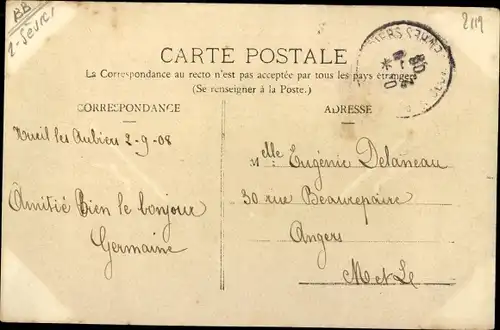 BB
2-Sèvres
2119
CARTE POSTALE
La Correspondance au recto n'est pas acceptée par tous les pays étrangers
(Se renseigner à la Poste.)
CORRESPONDANCE
ADRESSE
Nueil les Aubiers 2-9-08
Amitié Bien le bonjour
Germaine
Melle Eugénie Delaneau
30 rue Beaurepaire
Angers
M et L e